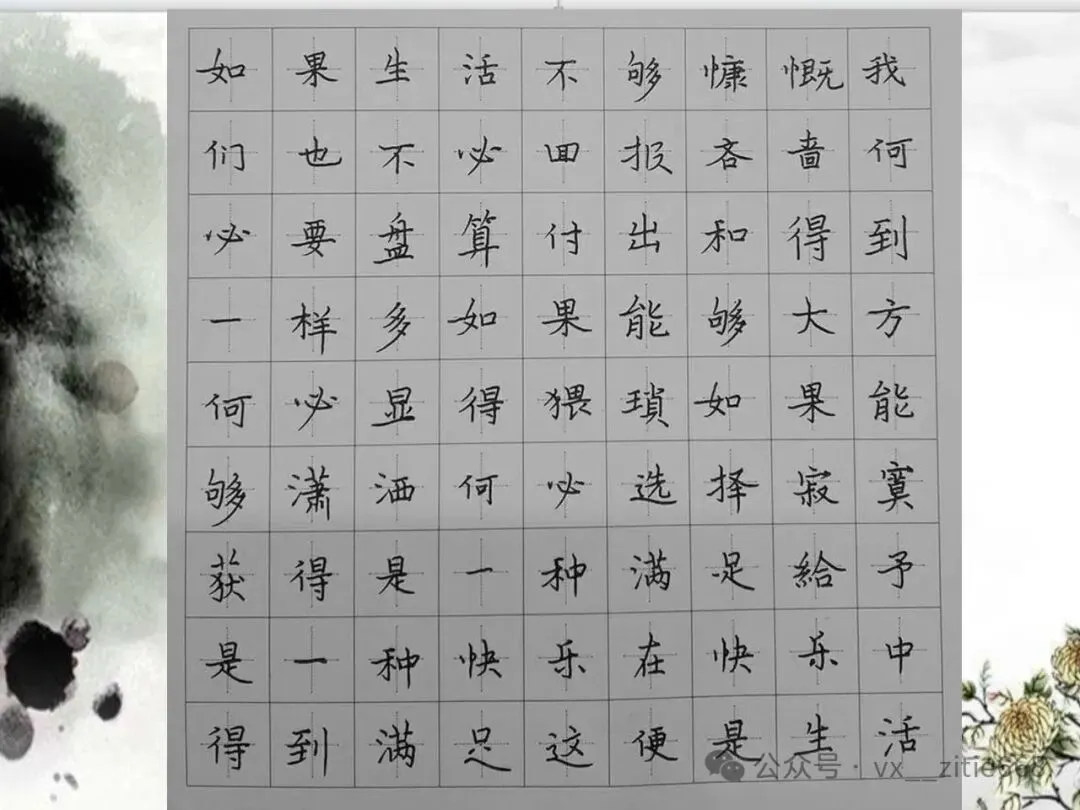 如果生活不够慷慨我
们也不必回报吝啬何
必要盘算付出和得到
一样多如果能够大方
何必显得猥琐如果能
够潇洒何必选择寂寞
获得是一种满足給予
是一种快乐在快乐中
得到满足这便是生活
公众号·vx__zitie